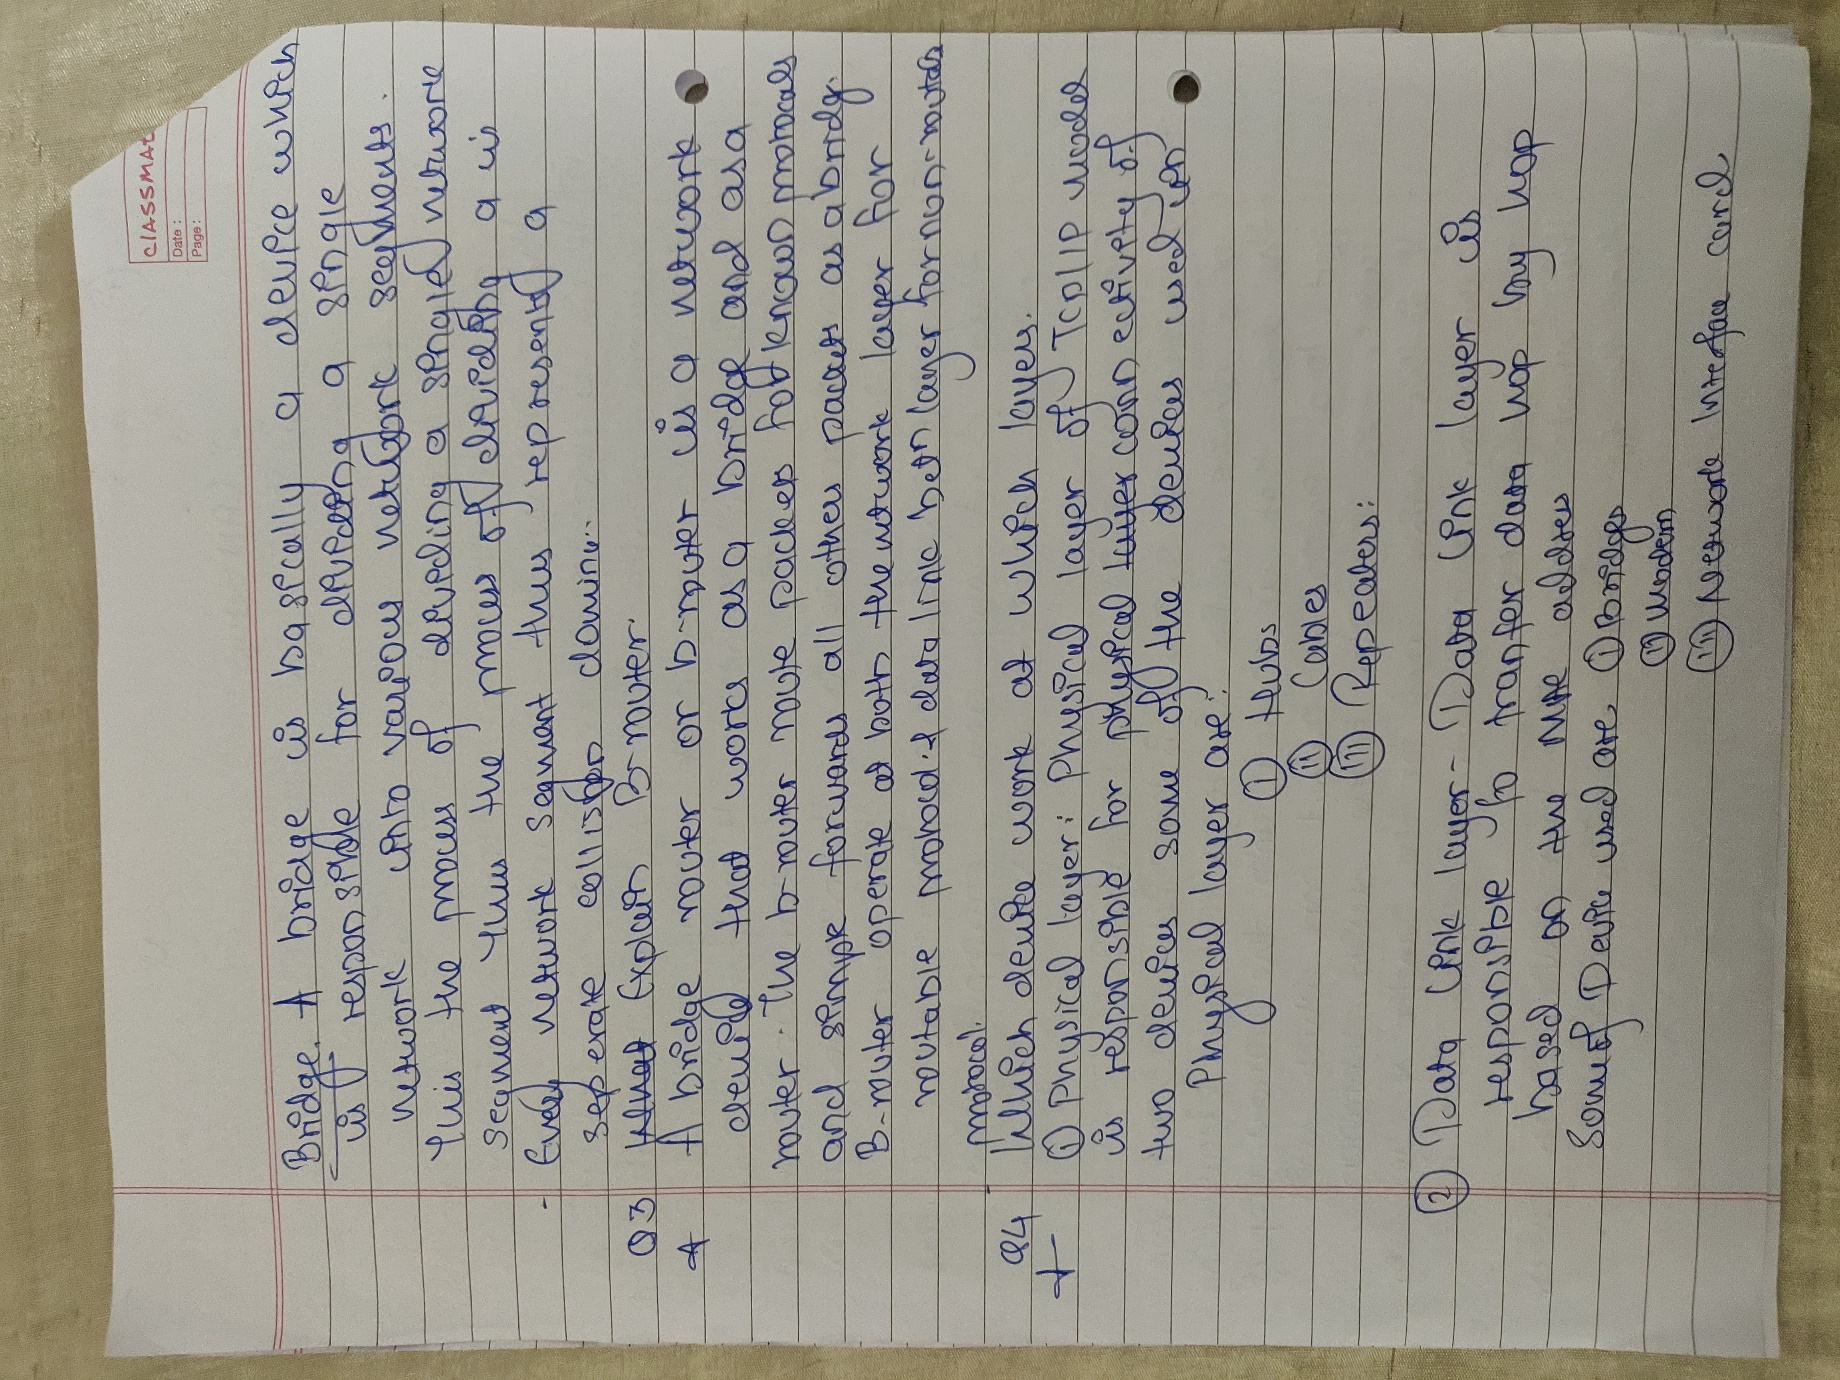 CLASSMAT
Date :
Page :
Bridge. A bridge is basically a device which
is responsible for dividing a single
network into various network segments.
This the process of dividing a singled network
segment thus the process of dividing a is
- Every network segment thus represented a
seperate collision domine..
Q3 What Explain B-router.
A bridge router or b-router is a network
device that works as a bridge and as a
router. The b-router route packes for known protocals
and simple forwards all others packets as a bridge.
B-router operate at both the network layer for
routable protocol & data link betn layer for non-routable
protocol.
Q4 Which device work at which layers.
① Physical layer: Physical layer of TCP/IP model
is responsible for physical layer connectivety of
two devices some of the devices used in
Physical layer are:
① Hubs
② Cables
③ Repeaters:
② Data link layer- Data link layer is
responsible to tranfer data hop by hop
based on the MAC address
Some of Device used are, ① Bridges
② Modem
③ Network Interface card